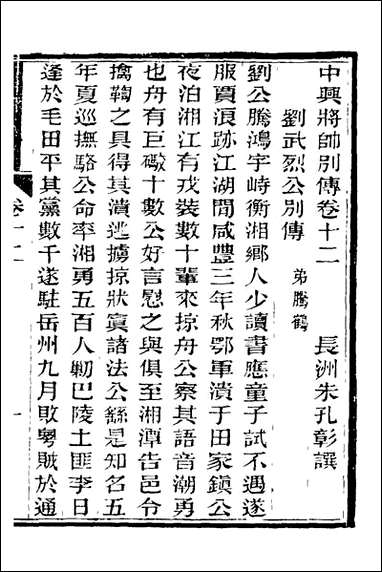 中興將帥別傳卷十二
長洲朱孔彰譔
劉武烈公別傳 弟騰鶴
劉公騰鴻字峙衡湘鄉人少讀書應童子試不遇遂
服賈浪跡江湖閒咸豐三年秋鄂軍潰于田家鎮公
夜泊湘江有戎裝數十輩來掠舟公察其語音潮勇
也舟有巨礮十數公好言慰之與俱至湘潭告邑令
擒鞫之具得其潰逃擄掠狀寘諸法公繇是知名五
年夏巡撫駱公命率湘勇五百人勦巴陵土匪李日
逢於毛田平其黨數千遂駐岳州九月敗粵賊於通
卷十二
一